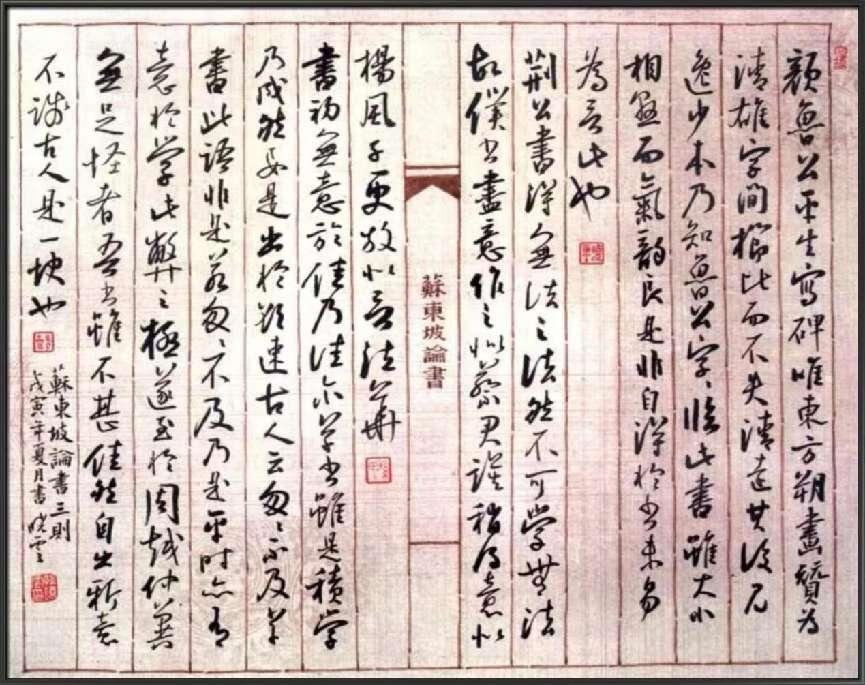 顏魯公平生寫碑唯東方朔畫贊為
清雄字間櫛比而不失清遠其後見
逸少本乃知魯公字、臨此書雖大小
相懸而氣韻良是非自得於書未易
為言此也
荊公書得無法之法然不可學無法
故僕書盡意作之似蔡君謨稍得意似
蘇東坡論書
楊風子更放似言法華
書初無意於佳乃佳尒草書雖是積學
乃成然要是出於欲速古人云匆、不及草
書此語非是若匆、不及乃是平時亦有
意於學此弊之極遂至於周越仲翼
無足怪者吾書雖不甚佳然自出新意
不踐古人是一快也
蘇東坡論書三則
戊寅年夏月書曉雲